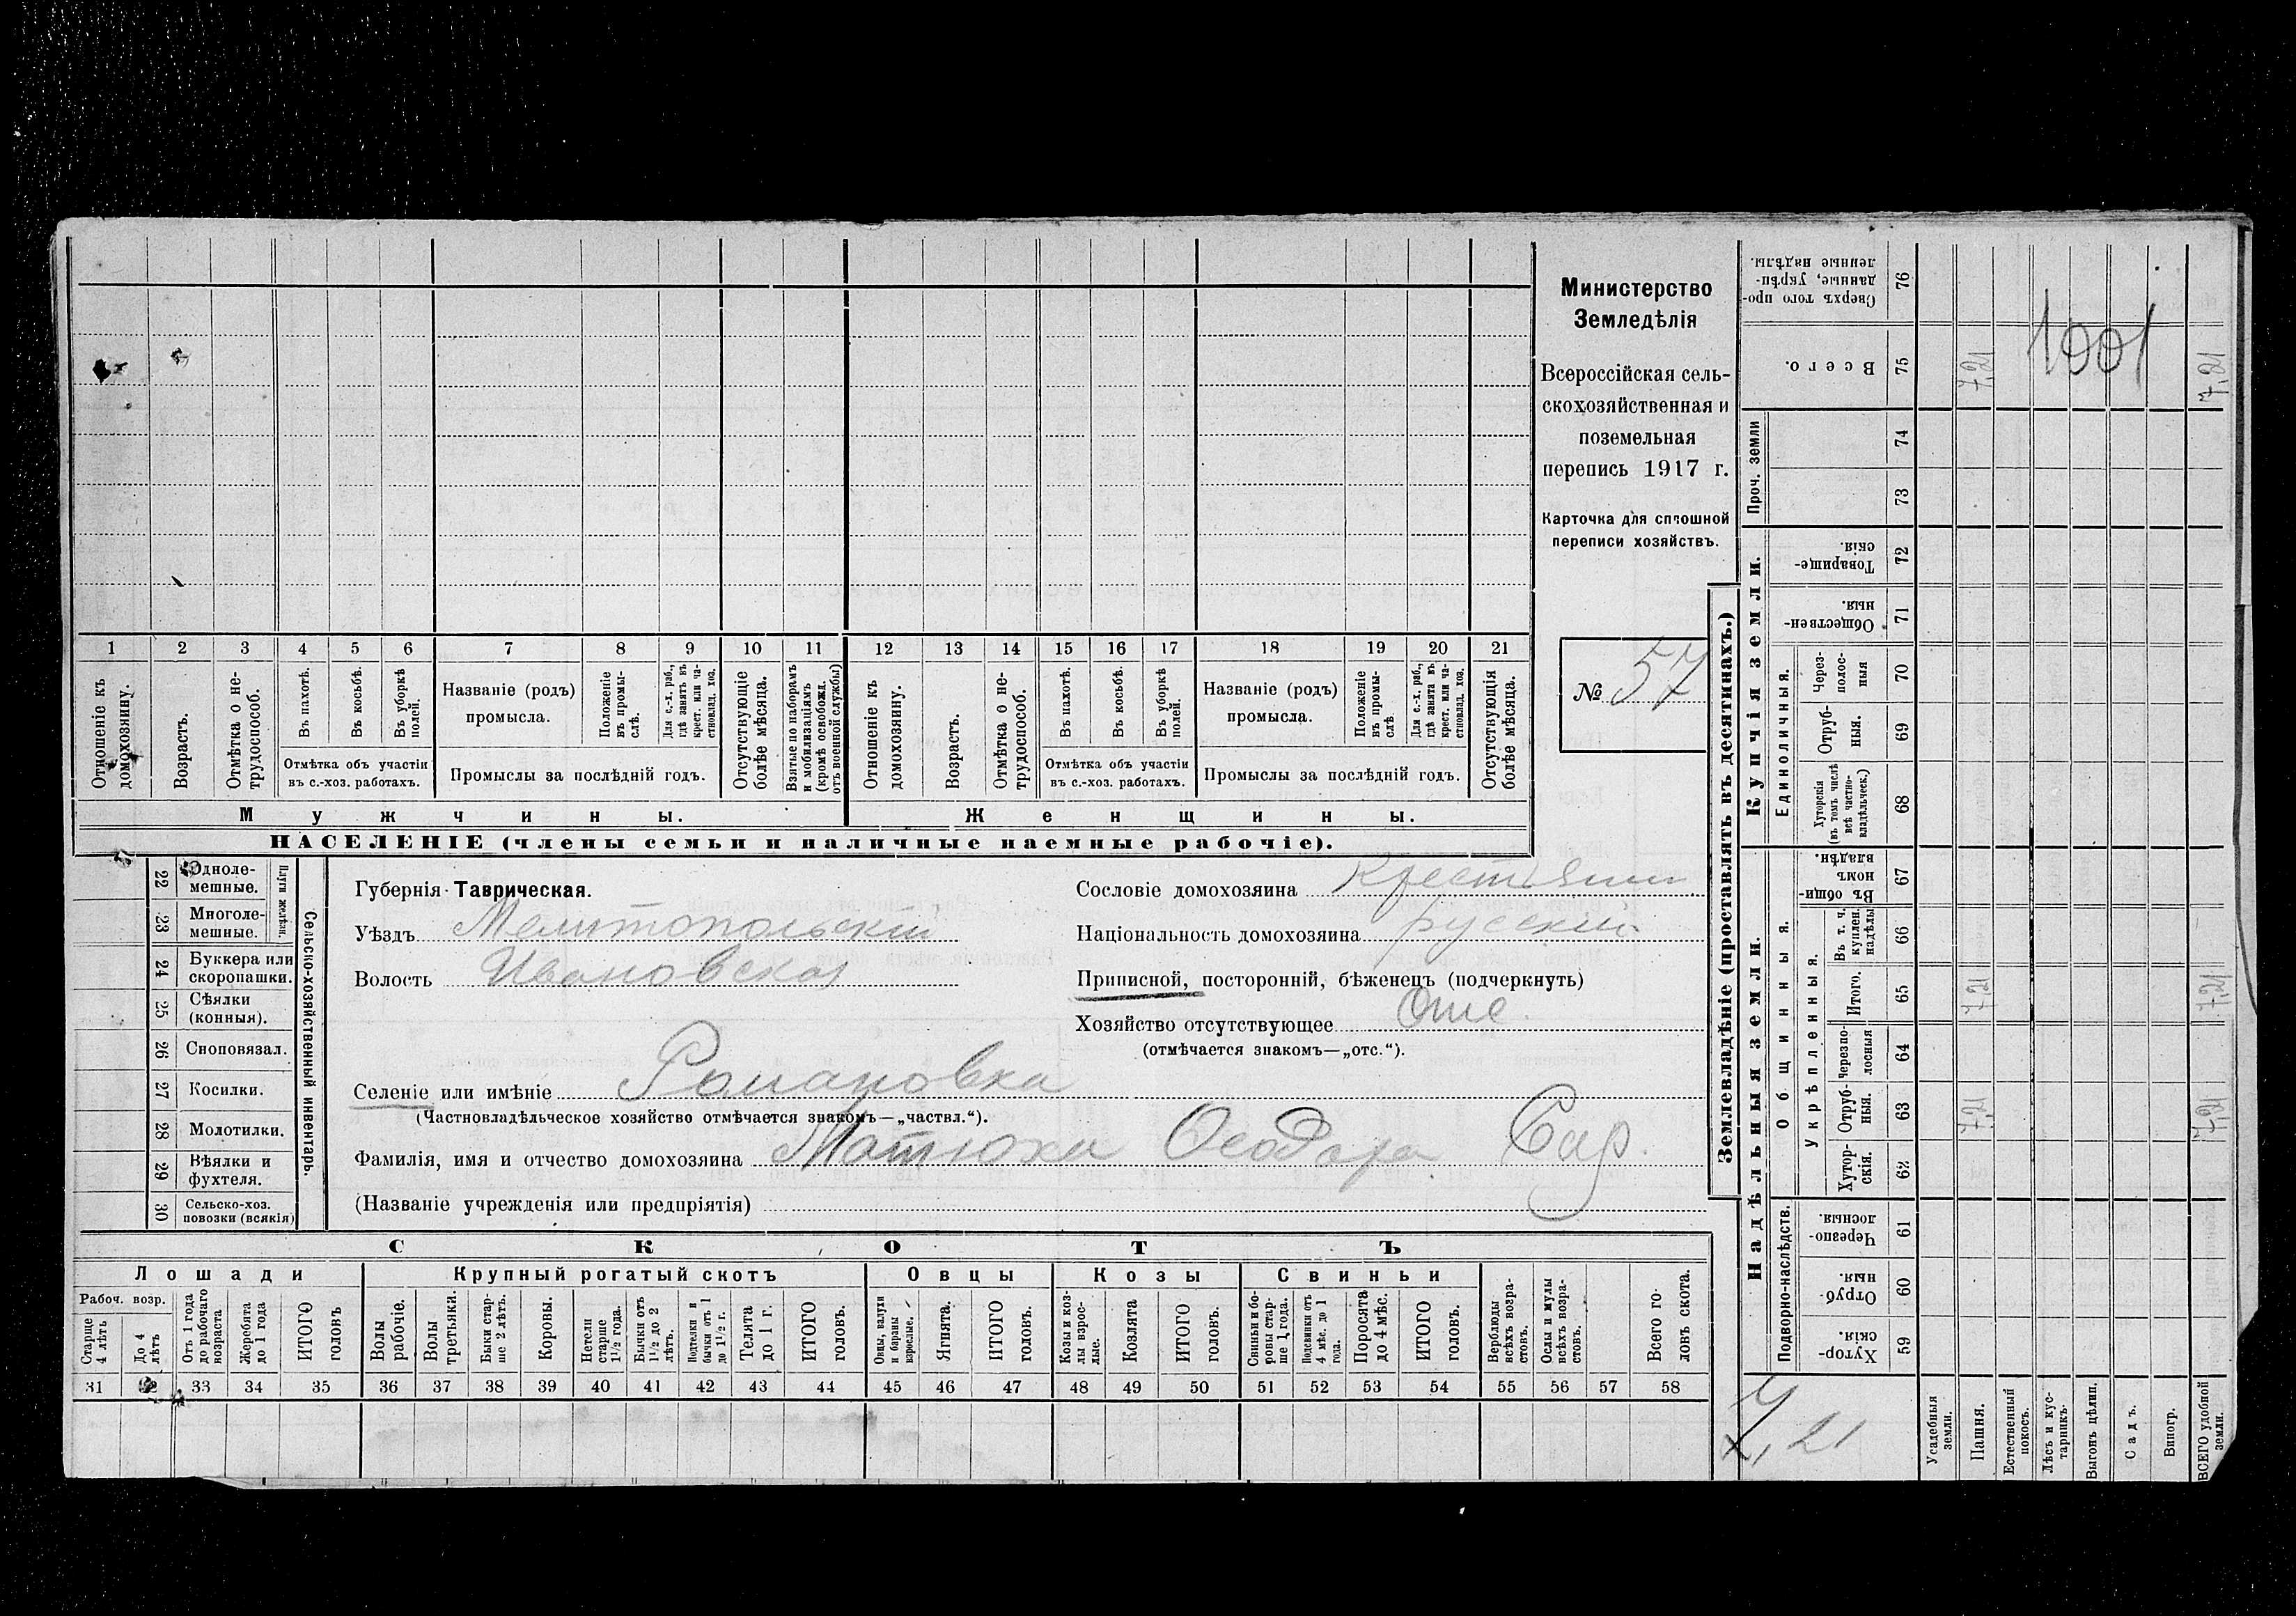 Министерство
Земледѣлія
Всероссійская сель-
скохозяйственная и
поземельная
перепись 1917 г.
Карточка для сплошной
переписи хозяйствъ.
№ 57
1 2 3 4 5 6 7 8 9 10 11 12 13 14 15 16 17 18 19 20 21
Отношеніе къ домохозяину.
Возрастъ.
Отмѣтка о не-трудоспособ.
Въ пахотѣ.
Въ косьбѣ.
Въ уборкѣ полей.
Отмѣтка объ участіи
въ с.-хоз. работахъ.
Названіе (родъ)
промысла.
Положеніе въ промы-слѣ.
Для с.-х. раб., гдѣ занятъ въ крест. или ча-стновлад. хоз.
Промыслы за послѣдній годъ.
Отсутствующіе болѣе мѣсяца.
Взятые по наборамъ и мобилизаціямъ (кромѣ освобожд. отъ военной службы)
Отношеніе къ домохозяину.
Возрастъ.
Отмѣтка о не-трудоспособ.
Въ пахотѣ.
Въ косьбѣ.
Въ уборкѣ полей.
Отмѣтка объ участіи
въ с.-хоз. работахъ.
Названіе (родъ)
промысла.
Положеніе въ промы-слѣ
Для с.-х. раб., гдѣ занята въ крест. или ча-стновлад. хоз.
Промыслы за послѣдній годъ.
Отсутствующія болѣе мѣсяца.
Мужчины. Женщины.
НАСЕЛЕНІЕ (члены семьи и наличные наемные рабочіе).
Сельско-хозяйственный инвентарь.
Плуги желѣзн.
22 Одноле-мешные.
23 Многоле-мешные.
24 Буккера или скоропашки.
25 Сѣялки (конныя).
26 Сноповязал.
27 Косилки.
28 Молотилки.
29 Вѣялки и фухтеля.
30 Сельско-хоз. повозки (всякія)
Губернія Таврическая.
Уѣздъ Мелитопольскій
Волость Ивановская
Сословіе домохозяина Крестьянин
Національность домохозяина русскій
Приписной, посторонній, бѣженецъ (подчеркнуть)
Хозяйство отсутствующее Отс.
(отмѣчается знакомъ—„отс.“).
Селеніе или имѣніе Романовка
(Частновладѣльческое хозяйство отмѣчается знакомъ—„частвл.“).
Фамилія, имя и отчество домохозяина Матюха
(Названіе учрежденія или предпріятія)
СКОТЪ
Лошади Крупный рогатый скотъ Овцы Козы Свиньи
Рабоч. возр.
Старще 4 лѣтъ
До 4 лѣтъ
Отъ 1 года до рабочаго возраста
Жеребята до 1 года
ИТОГО головъ
Волы рабочіе.
Волы третьяки.
Быки стар-ше 2 лѣтъ.
Коровы.
Нетели старше 1½ года.
Бычки отъ 1½ до 2 лѣтъ.
Подтелки и бычки отъ 1 до 1½ г.
Телята до 1 г.
ИТОГО головъ.
Овцы, валухи и бараны взрослые.
Ягнята.
ИТОГО головъ.
Козы и коз-лы взрос-лые.
Козлята
ИТОГО головъ.
Свиньи и бо-ровы стар-ше 1 года.
Подсвинки отъ 4 мѣс. до 1 года.
Поросята до 4 мѣс.
ИТОГО головъ.
Верблюды всѣхъ возра-стовъ.
Ослы и мулы всѣхъ возра-стовъ.
Всего го-ловъ скота.
31 32 33 34 35 36 37 38 39 40 41 42 43 44 45 46 47 48 49 50 51 52 53 54 55 56 57 58
Землевладѣніе (проставлять въ десятинахъ.)
Надѣльныя земли. Купчія земли.
Проч. земли
Подворно-наслѣдств.
Общинныя.
Укрѣпленныя.
Единоличныя.
Сверхъ того про-данные, укрѣп-ленные надѣлы. 76
Всего. 75 7,21 7,21
1001
74
73
Товарище-скія. 72
Обществен-ныя. 71
Через-полос-ныя 70
Отруб-ныя. 69
Хуторскія (въ томъ числѣ всѣ частно-владѣльческ.) 68
Въ общи-номъ владѣн. 67
Въ т. ч. куплен. надѣлы 66
Итого. 65 7,21 7,21
Черезпо-лосныя 64
Отруб-ныя. 63 7,21 7,21
Хутор-скія. 62
Черезпо-лосныя. 61
Отруб-ныя. 60
Хутор-скія. 59
7,21
Усадебныя земли.
Пашня.
Естественный покосъ.
Лѣсъ и кус-тарникъ.
Выгонъ цѣлин.
Садъ.
Виногр.
ВСЕГО удобной земли.